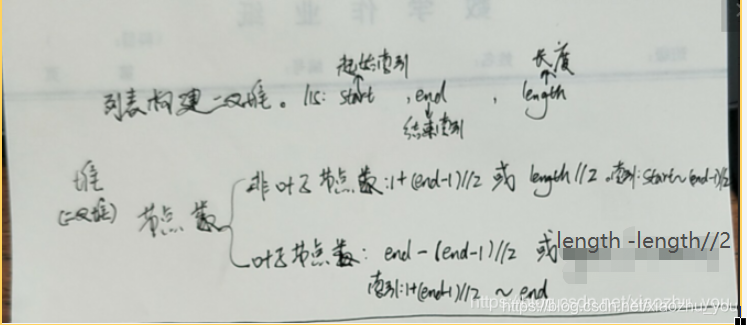 起始索引 长度
列表构建二叉堆。lis: start , end , length
结束索引
堆
(二叉堆) 节点数
非叶子节点数:1+(end-1)//2 或 length//2 。索引:start~(end-1)//2
叶子节点数: end-(end-1)//2 或 length -length//2
索引:1+(end-1)//2 ~ end
https://blog.csdn.net/xiaozhu_you